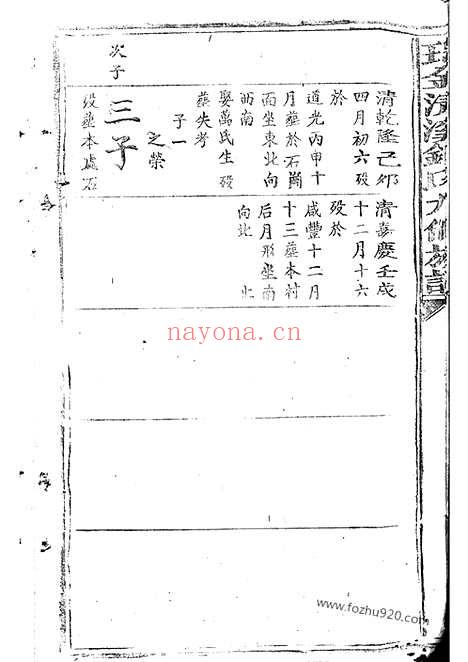 清溪鍾氏六修族譜
清乾隆己卯
四月初六殁
於
道光丙申十
月塟於石
面坐東北向
西南
娶萬氏生殁
葬失考
子一
之榮
次子
三子
殁塟本處左
清嘉慶壬戌
十二月十六
殁於
咸豐十二月
十三塟本村
后月形坐南
向北
nayona.cn
www.fozhu920.com